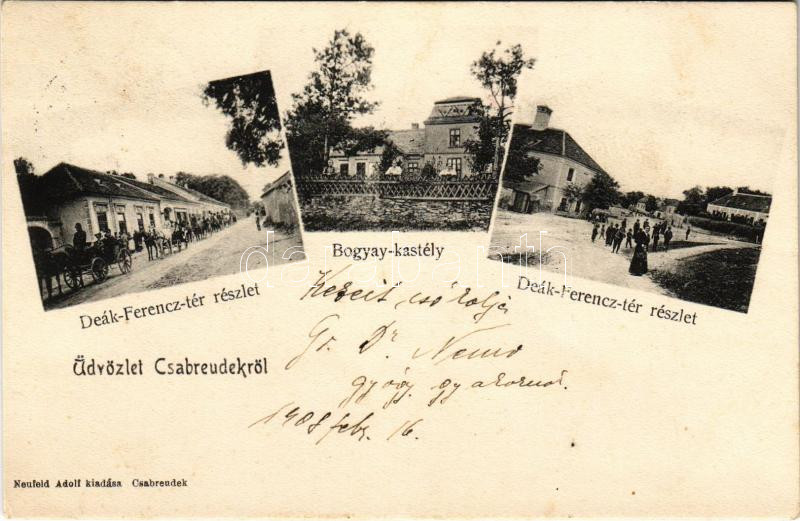 Bogyay-kastély
Deák-Ferencz-tér részlet
Deák-Ferencz-tér részlet
Üdvözlet Csabreudekről
Kezeit csókolja
Dr Nemo
gyóg.
1908 febr. 16.
Neufeld Adolf kiadása Csabreudek